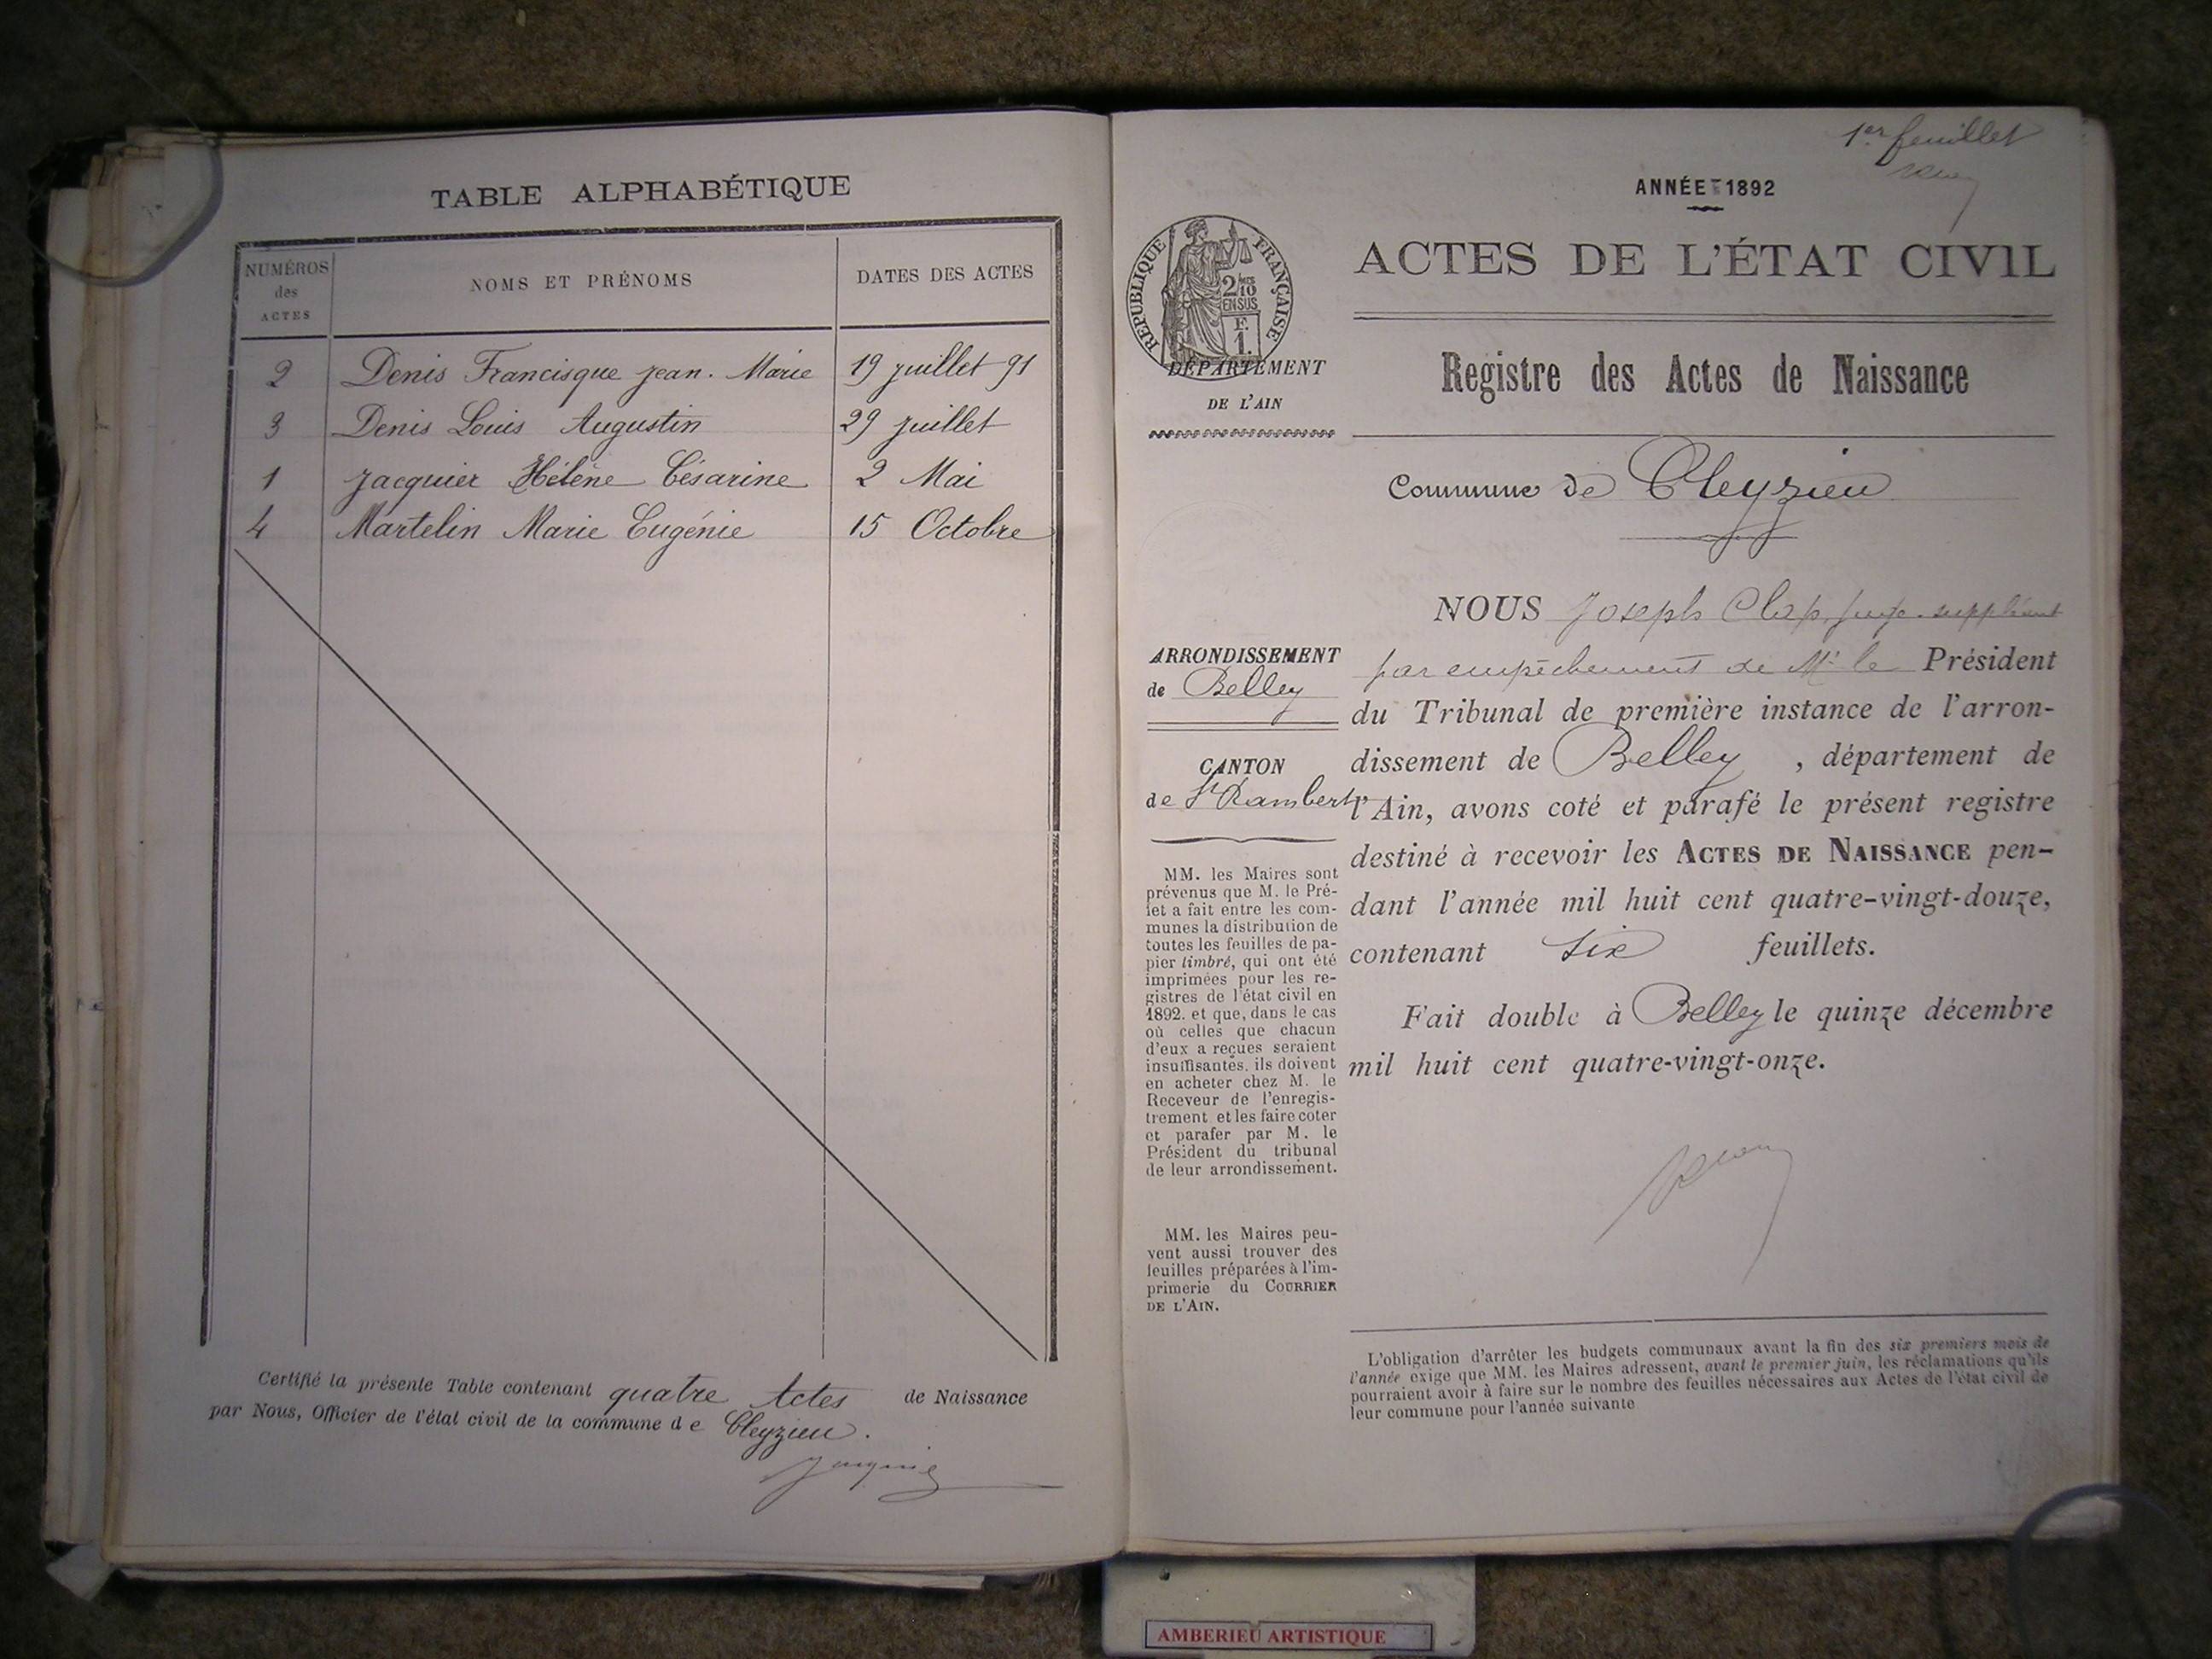 TABLE ALPHABÉTIQUE
NUMÉROS des ACTES
NOMS ET PRÉNOMS
DATES DES ACTES
2 Denis Francisque Jean. Marie 19 juillet 91
3 Denis Louis Augustin 29 juillet
1 Jacquier Hélène Césarine 2 Mai
4 Martelin Marie Eugénie 15 Octobre
Certifié la présente Table contenant quatre Actes de Naissance
par Nous, Officier de l'état civil de la commune de Cleyzieu.
1er feuillet
ANNÉE 1892
RÉPUBLIQUE FRANÇAISE
2/10
EN SUS
F.
1.
DÉPARTEMENT
DE L'AIN
ACTES DE L'ÉTAT CIVIL
Registre des Actes de Naissance
Commune de Cleyzieu
ARRONDISSEMENT
de Belley
CANTON
de St Rambert
MM. les Maires sont
prévenus que M. le Pré-
fet a fait entre les com-
munes la distribution de
toutes les feuilles de pa-
pier timbré, qui ont été
imprimées pour les re-
gistres de l'état civil en
1892. et que, dans le cas
où celles que chacun
d'eux a reçues seraient
insuffisantes. ils doivent
en acheter chez M. le
Receveur de l'enregis-
trement et les faire coter
et parafer par M. le
Président du tribunal
de leur arrondissement.
MM. les Maires peu-
vent aussi trouver des
feuilles préparées à l'im-
primerie du COURRIER
DE L'AIN.
NOUS Joseph Clap, juge suppléant
par empêchement de Mr le Président
du Tribunal de première instance de l'arron-
dissement de Belley, département de
l'Ain, avons coté et parafé le présent registre
destiné à recevoir les ACTES DE NAISSANCE pen-
dant l'année mil huit cent quatre-vingt-douze,
contenant six feuillets.
Fait double à Belley le quinze décembre
mil huit cent quatre-vingt-onze.
L'obligation d'arrêter les budgets communaux avant la fin des six premiers mois de
l'année exige que MM. les Maires adressent, avant le premier juin, les réclamations qu'ils
pourraient avoir à faire sur le nombre des feuilles nécessaires aux Actes de l'état civil de
leur commune pour l'année suivante
AMBERIEU ARTISTIQUE